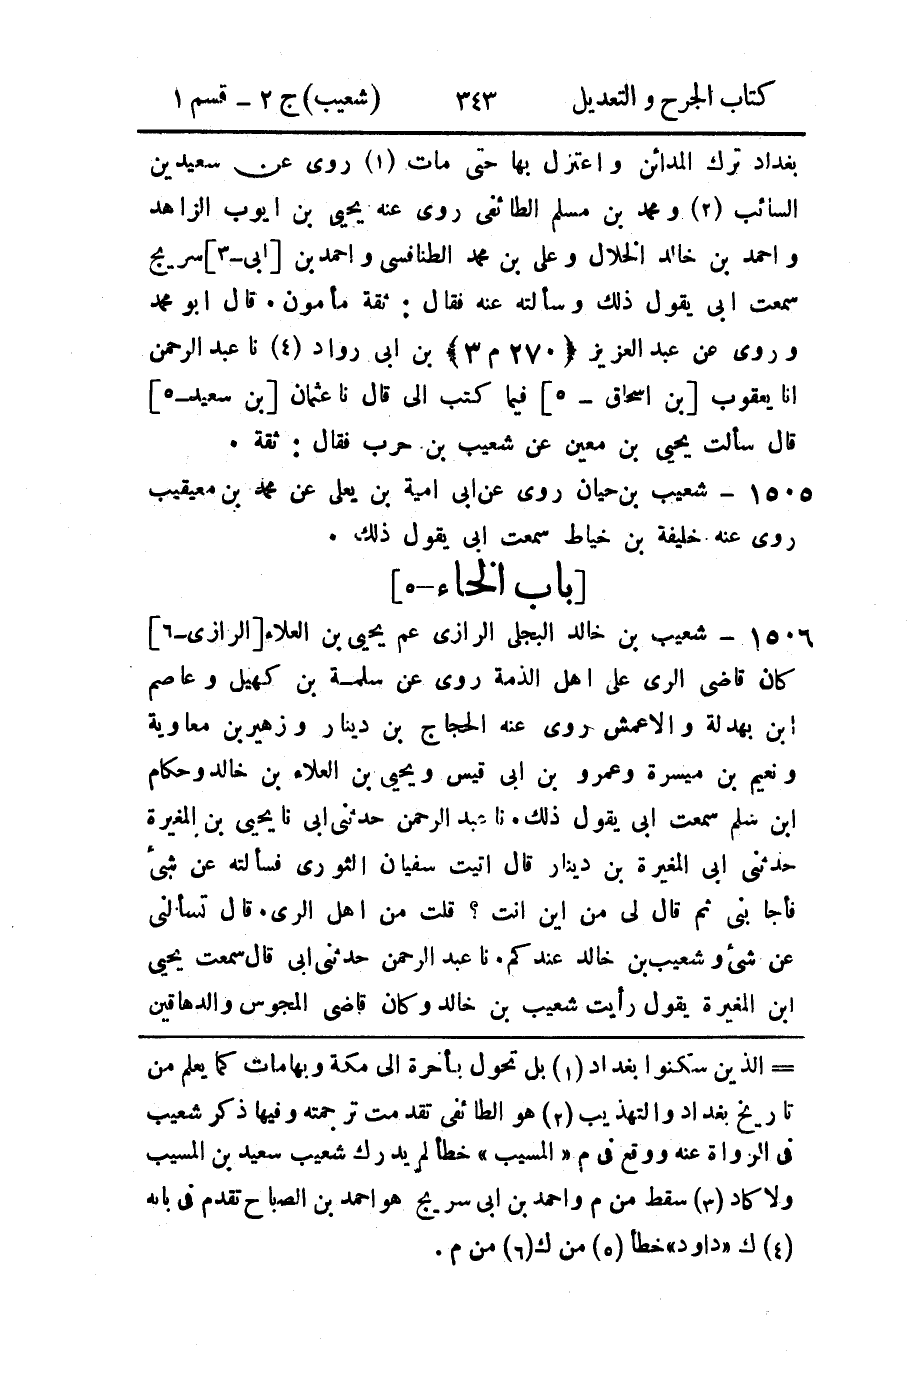 كتاب الجرح و التعديل ٣٤٣ (شعيب) ج ٢ - قسم ١
بغداد ترك المدائن و اعتزل بها حتى مات (١) روى عن سعيد بن
السائب (٢) و محمد بن مسلم الطائفى روى عنه يحيى بن ايوب الزاهد
و احمد بن خالد الخلال و على بن محمد الطنافسى و احمد بن [ابى-٣] سريج
سمعت ابى يقول ذلك و سألته عنه فقال : ثقة مأمون . قال ابو محمد
و روى عن عبد العزيز ﴿٢٧٠ م ٣﴾ بن ابى رواد (٤) نا عبد الرحمن
انا يعقوب [بن اسحاق - ٥] فيما كتب الى قال نا عثمان [بن سعيد-٥]
قال سألت يحيى بن معين عن شعيب بن حرب فقال : ثقة .
١٥٠٥ - شعيب بن حيان روى عن ابى امية بن يعلى عن محمد بن معيقيب
روى عنه خليفة بن خياط سمعت ابى يقول ذلك .
[باب الخاء-٥]
١٥٠٦ - شعيب بن خالد البجلى الرازى عم يحيى بن العلاء [الرازى-٦]
كان قاضى الرى على اهل الذمة روى عن سلمة بن كهيل و عاصم
ابن بهدلة و الاعمش روى عنه الحجاج بن دينار و زهير بن معاوية
و نعيم بن ميسرة و عمرو بن ابى قيس و يحيى بن العلاء بن خالد و حكام
ابن سلم سمعت ابى يقول ذلك . نا عبد الرحمن حدثنى ابى نا يحيى بن المغيرة
حدثنى ابى المغيرة بن دينار قال اتيت سفيان الثورى فسألته عن شئ
فأجابنى ثم قال لى من اين انت ؟ قلت من اهل الرى . قال تسألنى
عن شئ و شعيب بن خالد عندكم . نا عبد الرحمن حدثنى ابى قال سمعت يحيى
ابن المغيرة يقول رأيت شعيب بن خالد و كان قاضى المجوس والدهاقين
= الذين سكنوا بغداد (١) بل تحول بأخرة الى مكة و بها مات كما يعلم من
تاريخ بغداد والتهذيب (٢) هو الطائفى تقدمت ترجمته وفيها ذكر شعيب
فى الرواة عنه ووقع فى م «المسيب» خطأ لم يدرك شعيب سعيد بن المسيب
ولا كاد (٣) سقط من م واحمد بن ابى سريج هو احمد بن الصباح تقدم فى بابه
(٤) ك «داود» خطأ (٥) من ك (٦) من م .